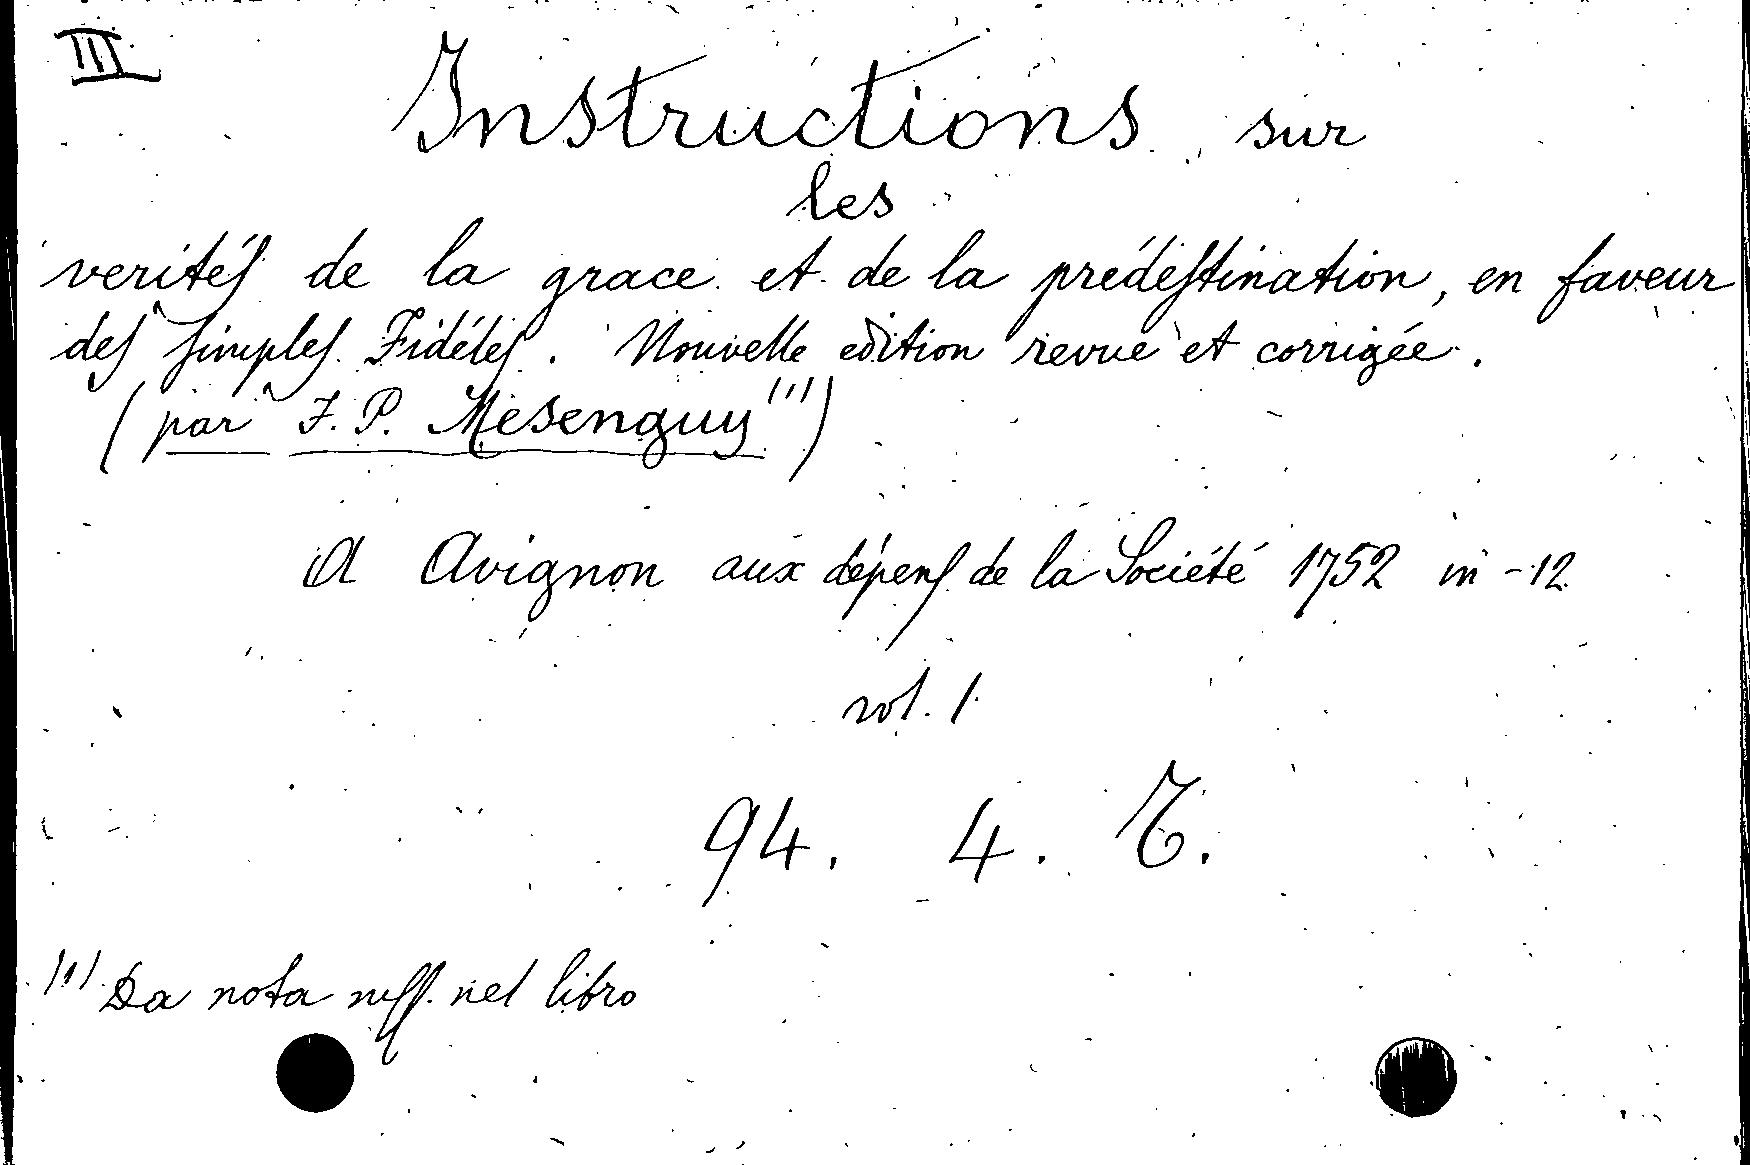 III
Instructions sur
les
veritéſ de la grace et de la prédeſtination, en faveur
deſ ſimpleſ Fidéleſ. Nouvelle edition revue et corrigée.
(par F. P. Mesenguy (1))
A Avignon aux dépenſ de la Société 1752 in-12
vol. 1
94. 4. T.
(1) Da nota mſſ. nel libro